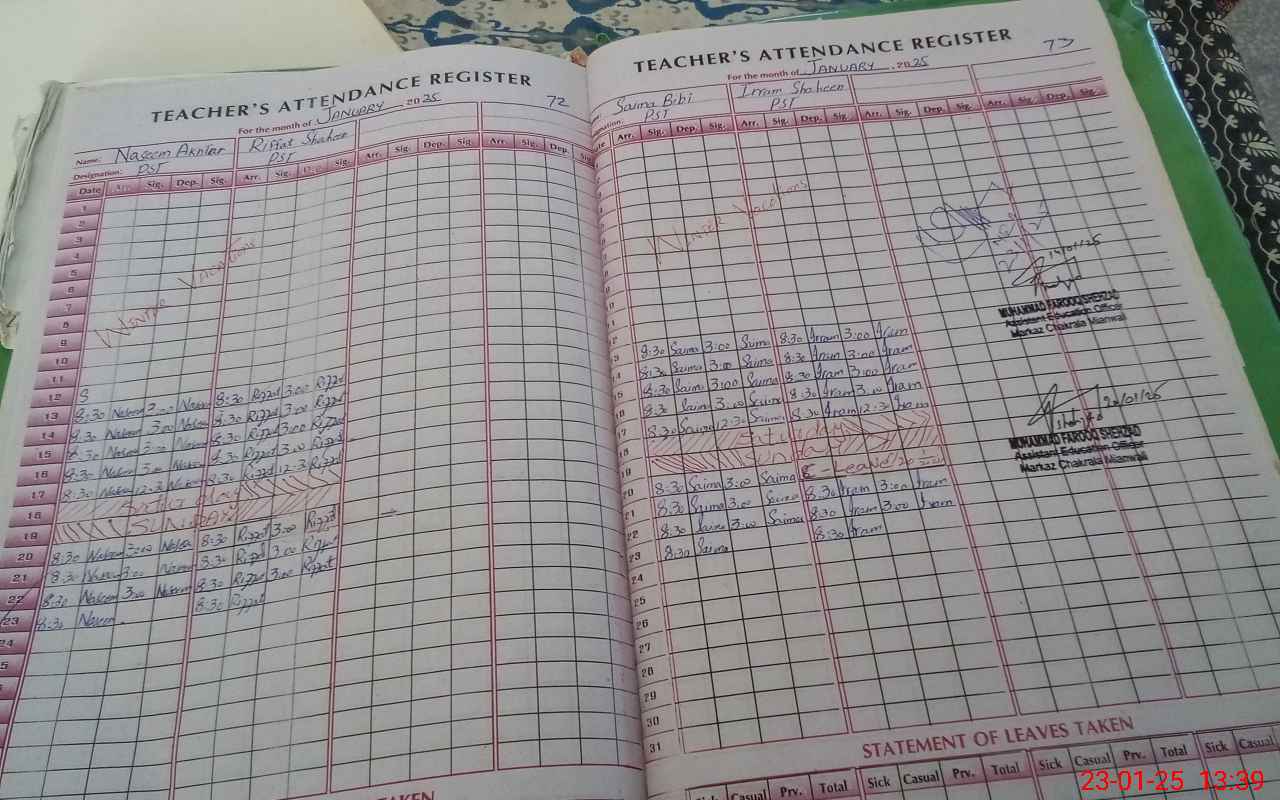 TEACHER'S ATTENDANCE REGISTER
72
For the month of JANUARY 2025
Name: Naseem Akhtar Riffat Shaheen
Designation: PST PST
Date Arr. Sig. Dep. Sig. Arr. Sig. Dep. Sig. Arr. Sig. Dep. Sig. Arr. Sig. Dep. Sig.
1
2
3
4
5
6
7
8
9
10
11
WINTER VACATIONS
12 S
13 8:30 Naseem 3:00 Naseem 8:30 Riffat 3:00 Riffat
14 8:30 Naseem 3:00 Naseem 8:30 Riffat 3:00 Riffat
15 8:30 Naseem 3:00 Naseem 8:30 Riffat 3:00 Riffat
16 8:30 Naseem 3:00 Naseem 8:30 Riffat 3:00 Riffat
17 8:30 Naseem 12:30 Naseem 8:30 Riffat 12:30 Riffat
18
19 SUNDAY
20 8:30 Naseem 3:00 Naseem 8:30 Riffat 3:00 Riffat
21 8:30 Naseem 3:00 Naseem 8:30 Riffat 3:00 Riffat
22 8:30 Naseem 3:00 Naseem 8:30 Riffat 3:00 Riffat
23 8:30 Naseem 8:30 Riffat
24
TAKEN
TEACHER'S ATTENDANCE REGISTER
73
For the month of JANUARY 2025
Saima Bibi Irram Shaheen
PST PST
Arr. Sig. Dep. Sig. Arr. Sig. Dep. Sig. Arr. Sig. Dep. Sig. Arr. Sig. Dep. Sig.
WINTER VACATIONS
8:30 Saima 3:00 Saima 8:30 Irram 3:00 Irram
8:30 Saima 3:00 Saima 8:30 Irram 3:00 Irram
8:30 Saima 3:00 Saima 8:30 Irram 3:00 Irram
8:30 Saima 3:00 Saima 8:30 Irram 3:00 Irram
17 8:30 Saima 12:30 Saima 8:30 Irram 12:30 Irram
Saturday
SUNDAY
20 8:30 Saima 3:00 Saima
21 8:30 Saima 3:00 Saima 8:30 Irram 3:00 Irram
22 8:30 Saima 3:00 Saima 8:30 Irram 3:00 Irram
23 8:30 Saima 8:30 Irram
24
25
26
27
28
29
30
31
MUHAMMAD FAROOQ SHERZAD
Assistant Education Officer
Markaz Chakrala Mianwali
20/01/25
MUHAMMAD FAROOQ SHERZAD
Assistant Education Officer
Markaz Chakrala Mianwali
STATEMENT OF LEAVES TAKEN
Sick Casual Prv. Total Sick Casual Prv. Total Sick Casual Prv. Total Sick Casual
23-01-25 13:39